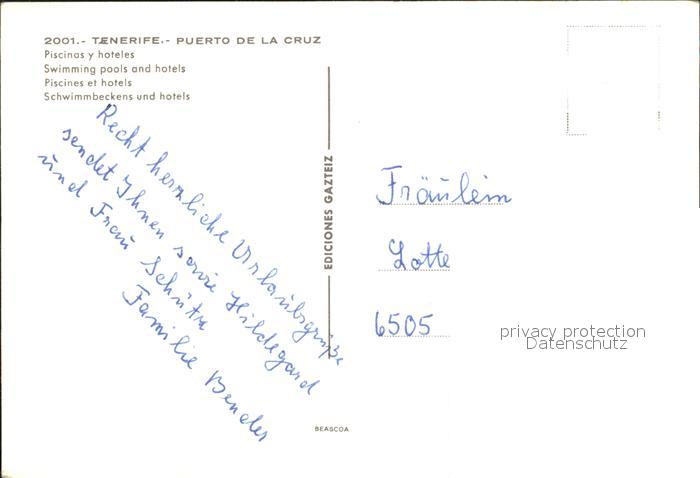 2001.- TENERIFE.- PUERTO DE LA CRUZ
Piscinas y hoteles
Swimming pools and hotels
Piscines et hotels
Schwimmbeckens und hotels
Recht herzliche Urlaubsgrüße
sendet Ihnen sowie Hildegard
und Frau Schütz
Familie Bender
EDICIONES GAZTEIZ
BEASCOA
Fräulein
Lotte
6505
privacy protection
Datenschutz